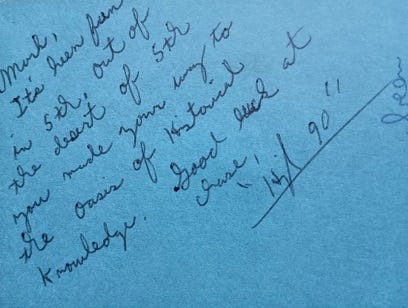 Mark,
It's been fun
in 5th, out of
the desert of 5th
you made your way to
the oasis of Historical
Knowledge. Good luck at
chase,
90"